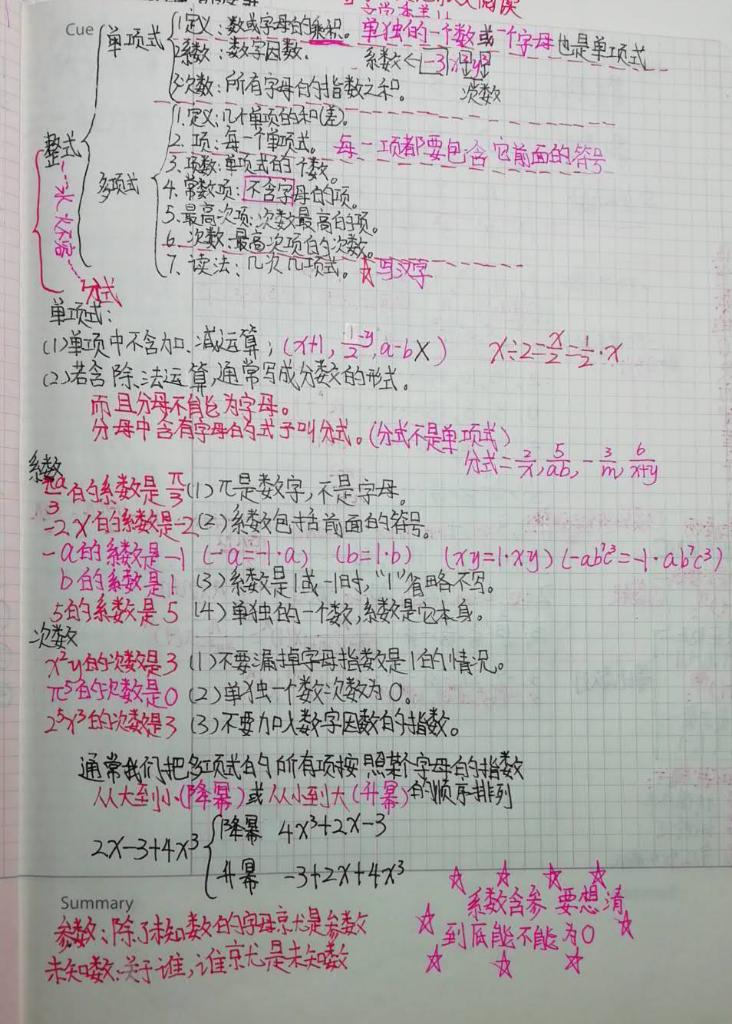 Cue
整式
单项式
1.定义:数或字母的乘积。单独的一个数或一个字母也是单项式
2.系数:数字因数。 系数←-3x²y³
3.次数:所有字母的指数之和。 次数
多项式
1.定义:几个单项的和(差)。
2.项:每一个单项式。每一项都要包含它前面的符号
3.项数:单项式的个数。
4.常数项:不含字母的项。
5.最高次项:次数最高的项。
6.次数:最高次项的次数。
7.读法:几次几项式。☆写汉字
分式
单项式:
(1)单项中不含加、减运算;(x+1, a-bx) x÷2=x/2=1/2·x
(2)若含除法运算,通常写成分数的形式。
而且分母不能为字母。
分母中含有字母的式子叫分式。(分式不是单项式)
分式=2/x,5/ab,-3/m,6/x+y
系数
πa/3的系数是π/3 (1)π是数字,不是字母。
-2x的系数是-2 (2)系数包括前面的符号。
-a的系数是-1 (-a=-1·a) (b=1·b) (xy=1·xy) (-ab⁷c³=-1·ab⁷c³)
b的系数是1 (3)系数是1或-1时,"1"省略不写。
5的系数是5 (4)单独的一个数,系数是它本身。
次数
x²y的次数是3 (1)不要漏掉字母指数是1的情况。
π⁵的次数是0 (2)单独一个数次数为0。
2⁵x³的次数是3 (3)不要加入数字因数的指数。
通常我们把多项式的所有项按照某个字母的指数
从大到小(降幂)或从小到大(升幂)的顺序排列
2x-3+4x³
降幂 4x³+2x-3
升幂 -3+2x+4x³
Summary
参数:除了未知数的字母就是参数
未知数:关于谁,谁就是未知数
系数含参 要想清
到底能不能为0